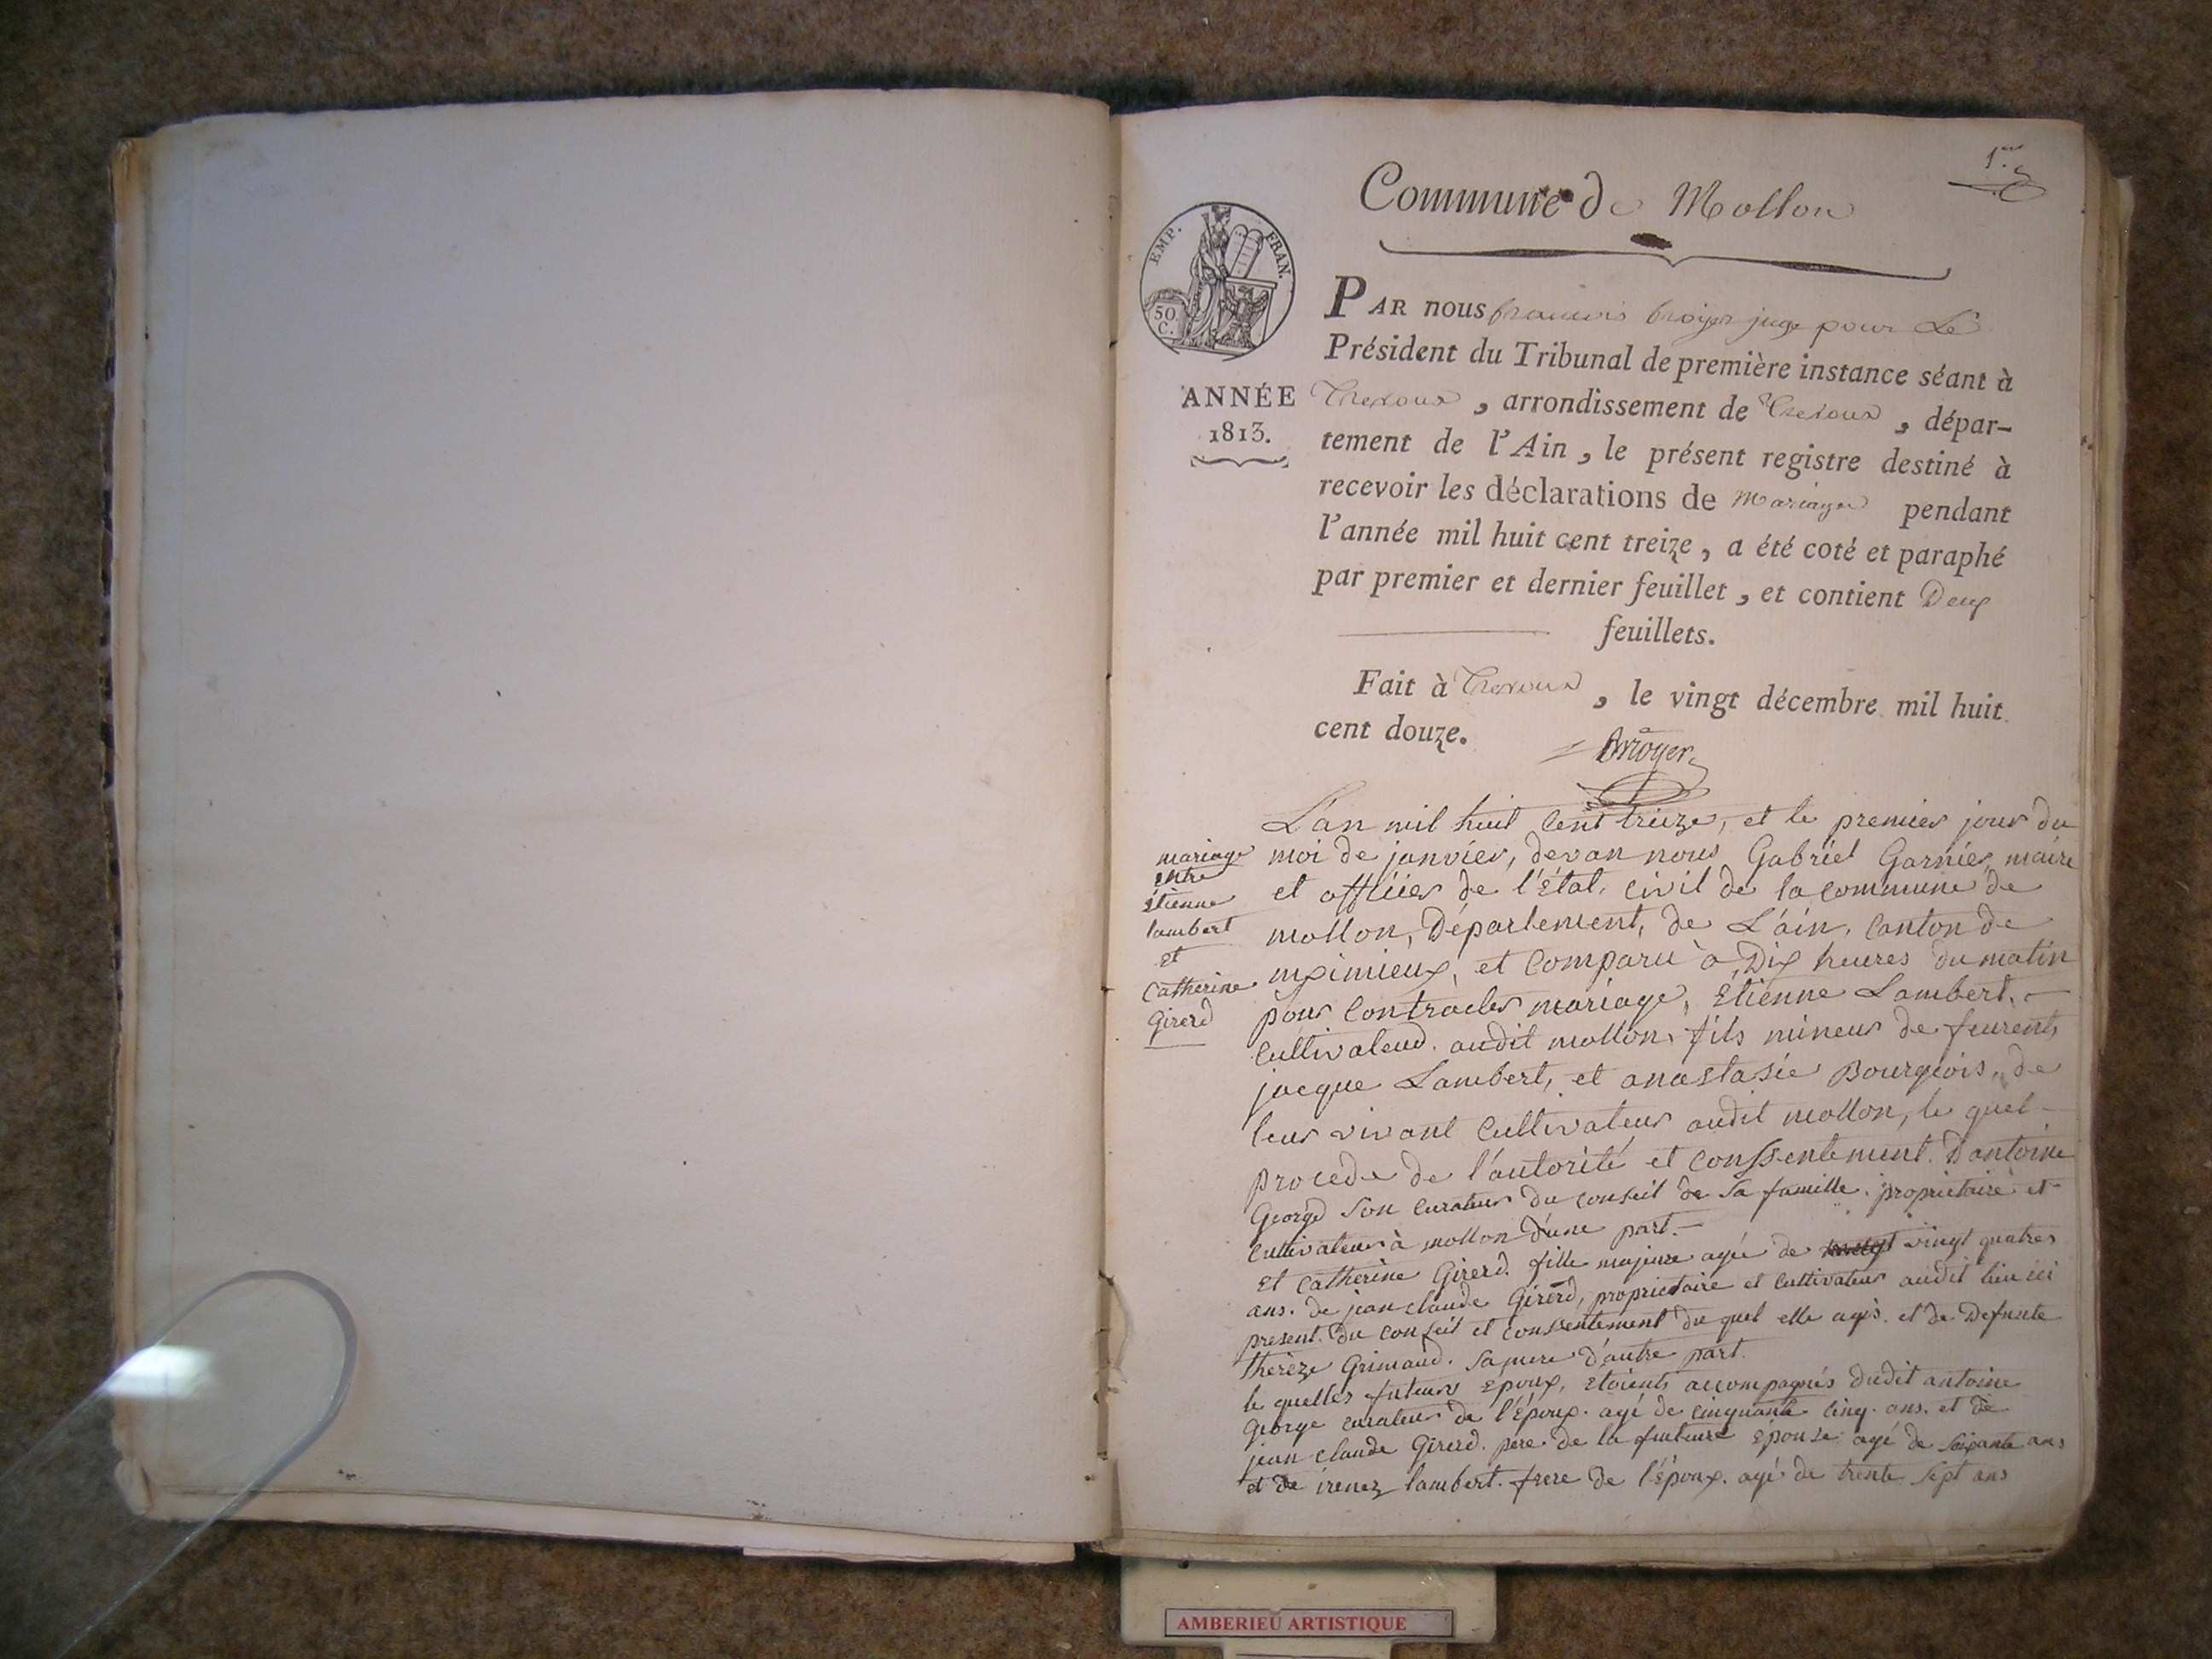 1er
Commune de Mollon
EMP. FRAN.
50
C.
ANNÉE
1813.
PAR nous françois broyer juge pour Le
Président du Tribunal de première instance séant à
Trevoux, arrondissement de Trevoux, dépar-
tement de l'Ain, le présent registre destiné à
recevoir les déclarations de Mariages pendant
l'année mil huit cent treize, a été coté et paraphé
par premier et dernier feuillet, et contient Deux
feuillets.
Fait à Trevoux, le vingt décembre mil huit
cent douze.
Broyer
mariage
entre
étienne
lambert
et
Catherine
Girerd
L'an mil huit Cent treize, et le premier jour du
moi de janvier, devan nous Gabriel Garnier, maire
et officier de l'état, civil de la commune de
mollon, Département, de L'áin, Canton de
mximieux, et Comparu à Dix heures du matin
pour Contracter mariage, Etienne Lambert,
Cultivateur audit mollon, fils mineur de feurents
jacque Lambert, et anastasie Bourgeois, de
leur vivant Cultivateur audit mollon, le quel
procede de l'autorité et conssentement D'antoine
George Son Curateur du conseil de Sa famille, proprietaire et
Cultivateur à mollon d'une part.
Et Catherine Girerd. fille majeure agée de vingt quatres
ans. de jean claude Girerd, proprietaire et Cultivateur audit lieu ici
present. du conseil et conssentement du quel elle agis. et de Defunte
thérèze Grimaud. sa mere d'autre part.
le quelles futeurs Époux, Etoients accompagnés dudit antoine
George curateur de l'Époux. agé de cinquante cinq. ans. et de
jean claude Girerd. pere de la futeure Epouse agé de Soixante ans
et de irenez lambert. frere de l'Époux. agé de trente Sept ans
AMBERIEU ARTISTIQUE